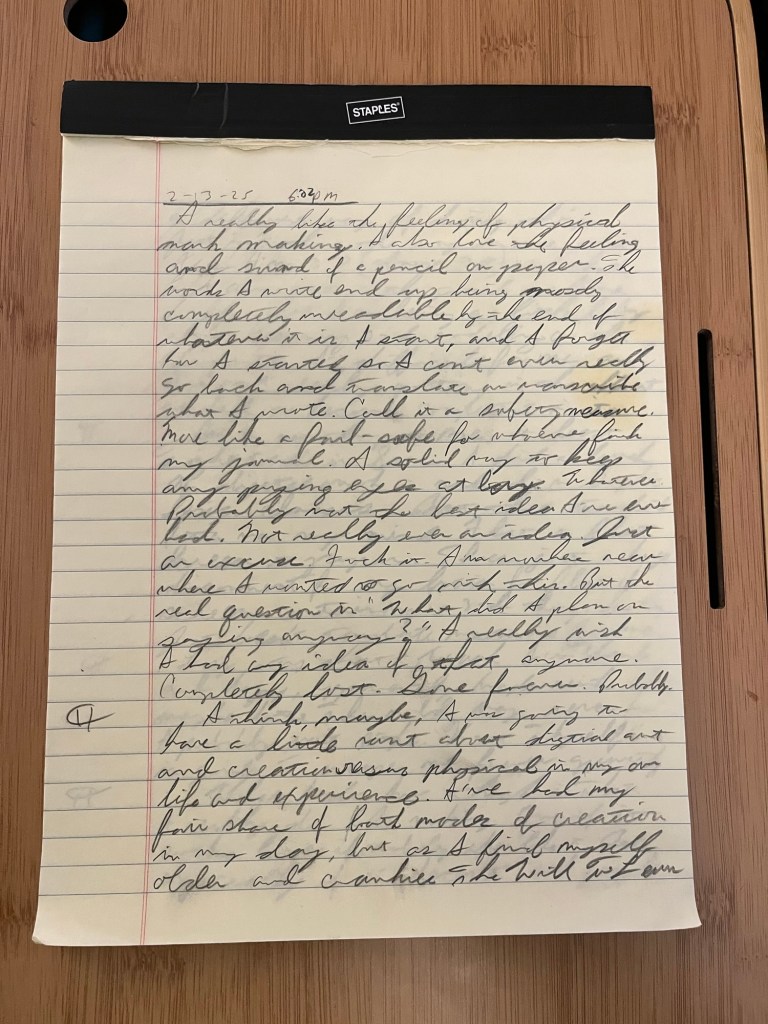 STAPLES
2-13-25 6:02pm
I really like the feeling of physical
mark making. I also love the feeling
and sound of a pencil on paper. The
words I write end up being mostly
completely unreadable by the end of
whatever it is I start, and I forget
how I started so I can't even really
go back and translate or transcribe
what I wrote. Call it a safety measure.
More like a fail-safe for whoever finds
my journal. A solid way to keep
any prying eyes at bay. Whatever.
Probably not the best idea I've ever
had. Not really even an idea. Just
an excuse. Fuck it. I'm nowhere near
where I wanted to go with this. But the
real question is "What did I plan on
saying anyway?" I really wish
I had any idea of that anymore.
Completely lost. Gone forever. Probably.
I think, maybe, I was going to
have a little rant about digital art
and creation versus physical in my own
life and experience. I've had my
fair share of both modes of creation
in my day, but as I find myself
older and crankier the will to